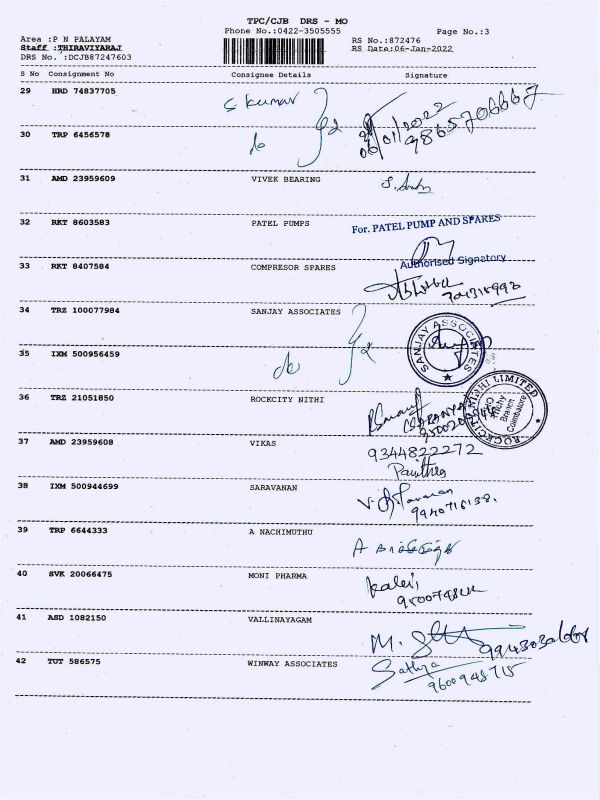 TPC/CJB DRS - MO
Phone No.:0422-3505555 Page No.:3
Area :P N PALAYAM RS No.:872476
Staff :THIRAVIYARAJ RS Date:06-Jan-2022
DRS No. :DCJB87247603
S No Consignment No Consignee Details Signature
29 HRD 74837705
S Kumar
06/01/2022
9865706667
30 TRP 6456578
do
31 AMD 23959609 VIVEK BEARING
32 RKT 8603583 PATEL PUMPS
For. PATEL PUMP AND SPARES
Authorised Signatory
33 RKT 8407584 COMPRESOR SPARES
34 TRZ 100077984 SANJAY ASSOCIATES
SANJAY ASSOCIATES
35 IXM 500956459
do
36 TRZ 21051850 ROCKCITY NITHI
ROCKCITY NIDHI LIMITED
Trichy
Branch
Coimbatore
37 AMD 23959608 VIKAS
9344822272
Pavithra
38 IXM 500944699 SARAVANAN
39 TRP 6644333 A NACHIMUTHU
40 SVK 20066475 MONI PHARMA
41 ASD 1082150 VALLINAYAGAM
42 TUT 586575 WINWAY ASSOCIATES
Sathya
9600948715